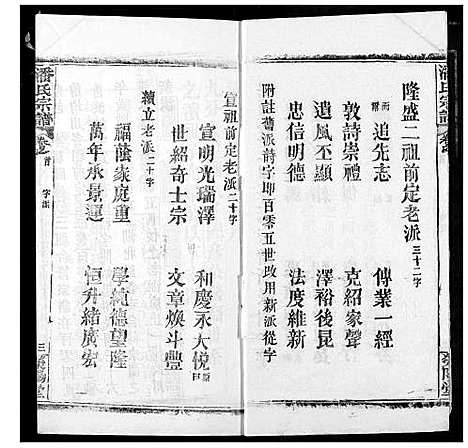 潘氏宗譜
隆盛二祖前定老派三十二字
追先志 傳業一經
敦詩崇禮 克紹家聲
遺風丕顯 澤裕後昆
忠信明德 法度維新
附註舊派詩字即百零五世政用新派從字
宣祖前定老派二十字
宣明光瑞澤 和慶永大悅
世紹奇士宗 文章煥斗豐
續立老派二十字
福蔭家庭重 學純德望隆
萬年承景運 恒升緒廣宏
潘氏宗譜
卷首
字派
三